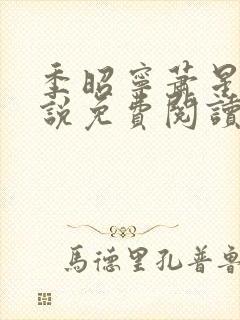 季昭寧蕭星
說免費閱讀
馬德里孔普魯